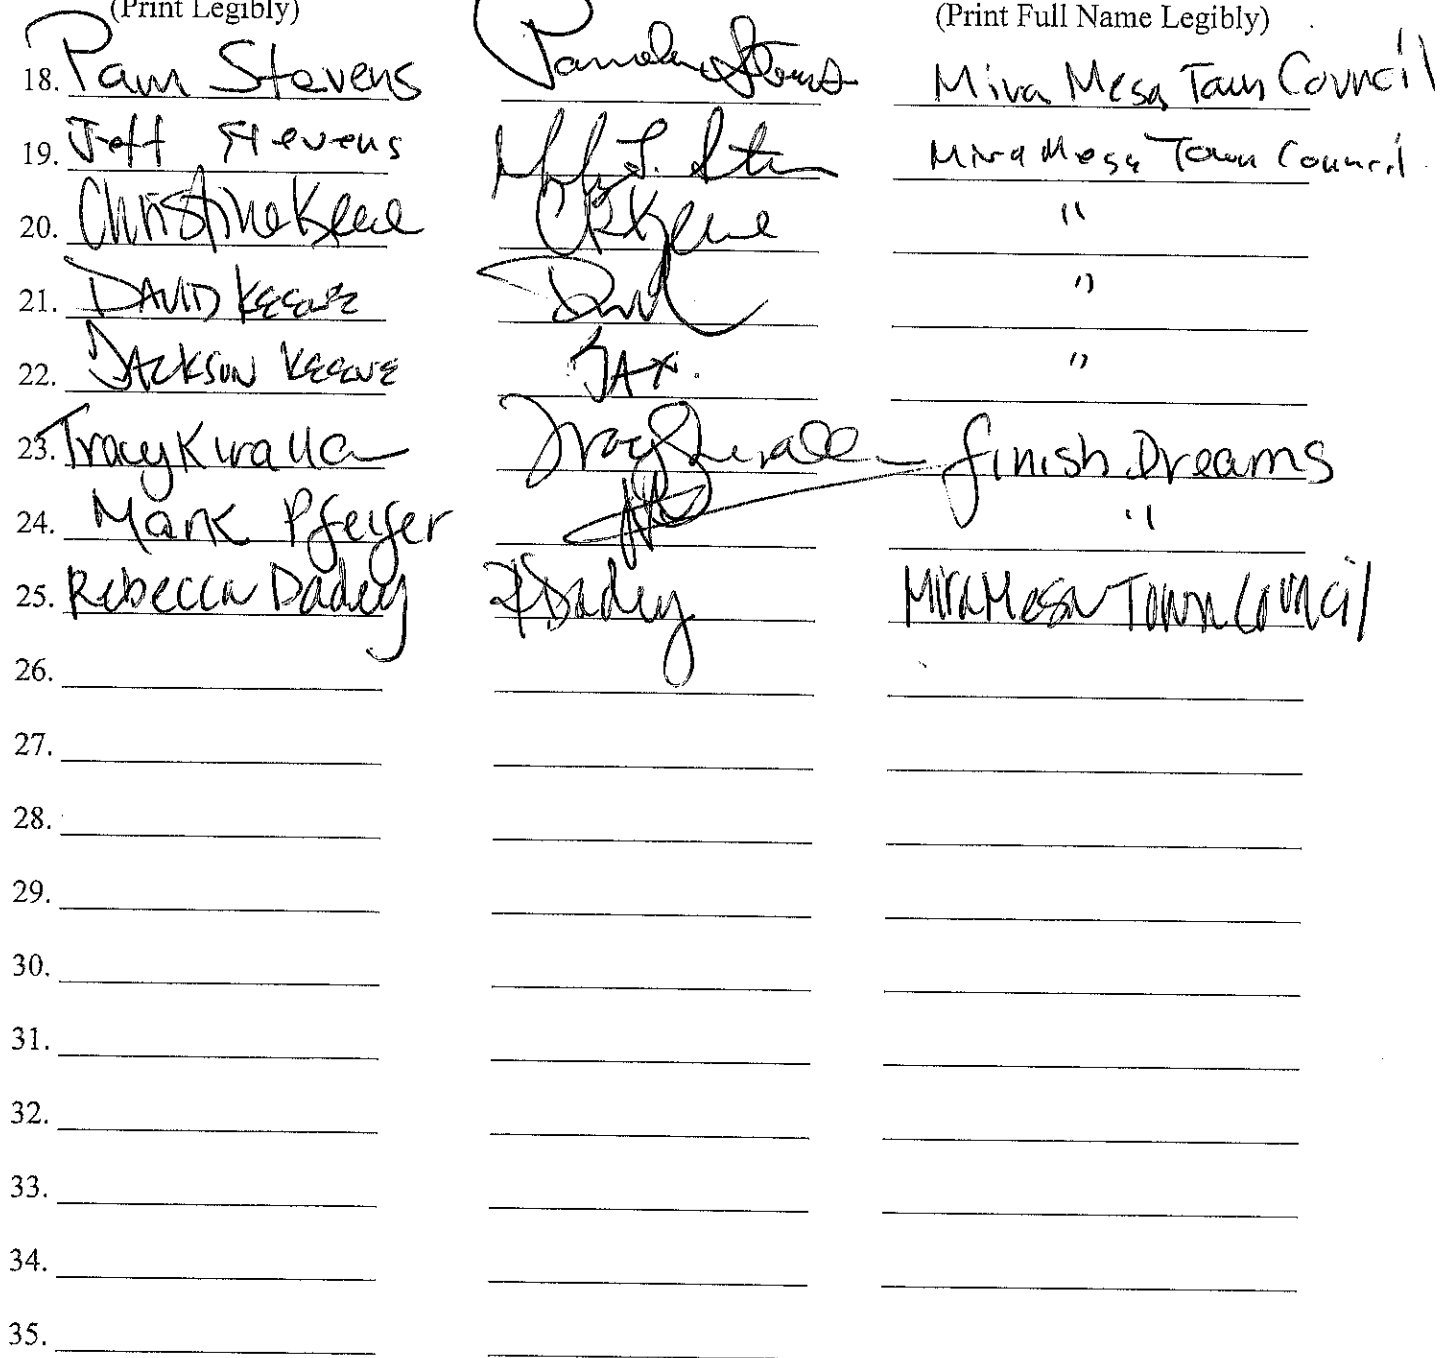 (Print Legibly) (Print Full Name Legibly)
18. Pam Stevens Pamela Stevens Mira Mesa Town Council
19. Jeff Stevens Mira Mesa Town Council
20. Christine Keene CRKeene "
21. DAVID KEENE "
22. JACKSON KEENE JAX. "
23. Tracy finish Dreams
24. Mark Pfeyfer "
25. Rebecca Dadey RDadey Mira Mesa Town Council
26.
27.
28.
29.
30.
31.
32.
33.
34.
35.